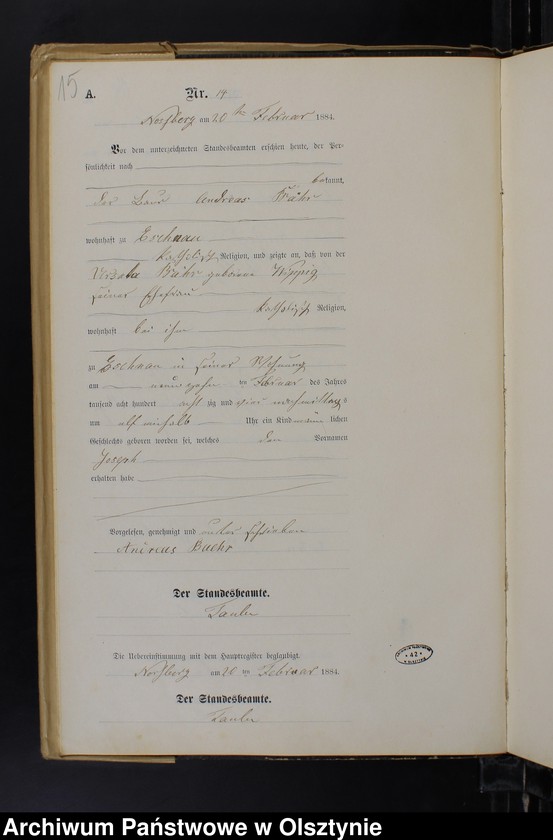 15
A. Nr. 19
am 20 ten Februar 1884.
Vor dem unterzeichneten Standesbeamten erschien heute, der Per-
sönlichkeit nach
bekannt,
der Andreas Bähr
wohnhaft zu Eschenau
katholischer Religion, und zeigte an, daß von der
Bähr geborene Wippig
seiner Ehefrau
katholischer Religion,
wohnhaft bei ihm
zu Eschenau in seiner Wohnung
am neunzehn ten Februar des Jahres
tausend acht hundert acht zig und vier nachmittags
um elf einhalb Uhr ein Kind männlichen
Geschlechts geboren worden sei, welches den Vornamen
Joseph
erhalten habe
Vorgelesen, genehmigt und unterschrieben
Andreas Baehr
Der Standesbeamte.
Die Uebereinstimmung mit dem Hauptregister beglaubigt.
am 20 ten Februar 1884.
Der Standesbeamte.
42
Archiwum Państwowe w Olsztynie